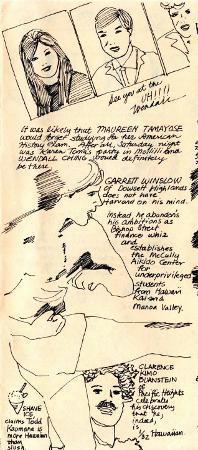 See you at the
UH!!!!
Wendell
It was likely that MAUREEN TAMAYOSE
would forget studying for her American
History Exam. After all, Saturday night
was Karen Toma's party in Moiliili and
WENDELL CHING would definitely
be there.
GARRETT WINSLOW
of Dowsett Highlands
does not have
Harvard on his mind.
Instead he abandons
his ambitions as
Bishop Street
finance whiz
and
establishes
the McCully
Aikido Center
for
underprivileged
students
from Hawaii
Kai and
Manoa Valley.
SHAVE
ICE
claims Todd
Kaumana is
more Hawaiian
than
slush.
CLARENCE
KIMO
BURNSTEIN
of
Pacific Heights
celebrates
his discovery
that he,
indeed,
is
1/32 Hawaiian.